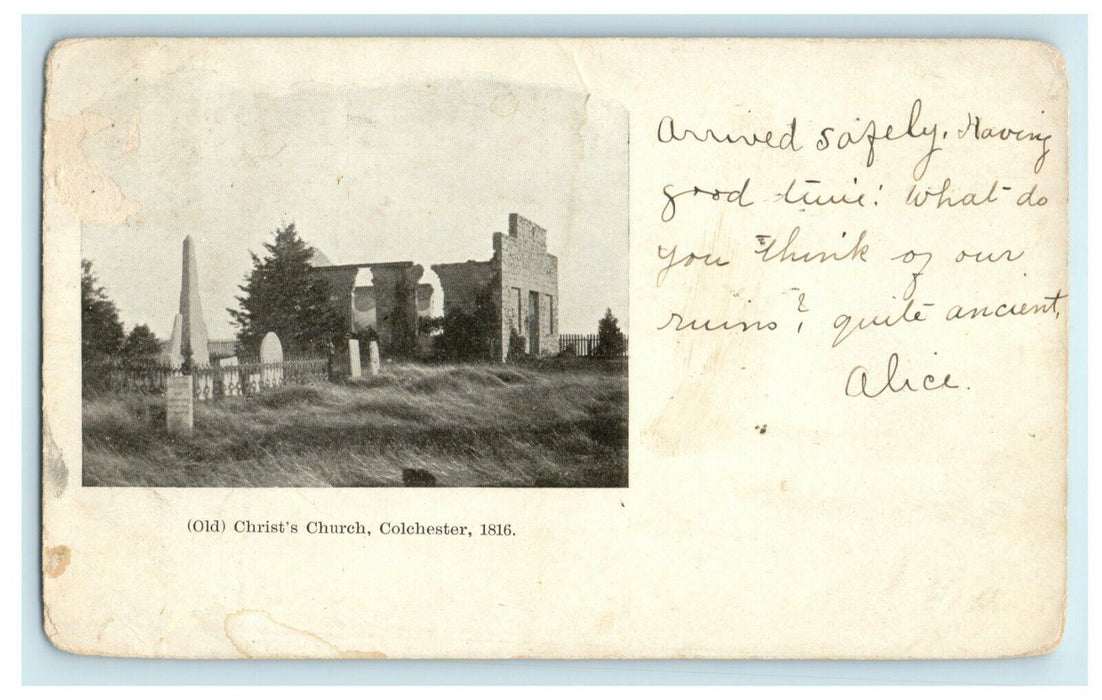 Arrived safely. Having
good time. What do
you think of our
ruins? quite ancient,
Alice.
(Old) Christ's Church, Colchester, 1816.